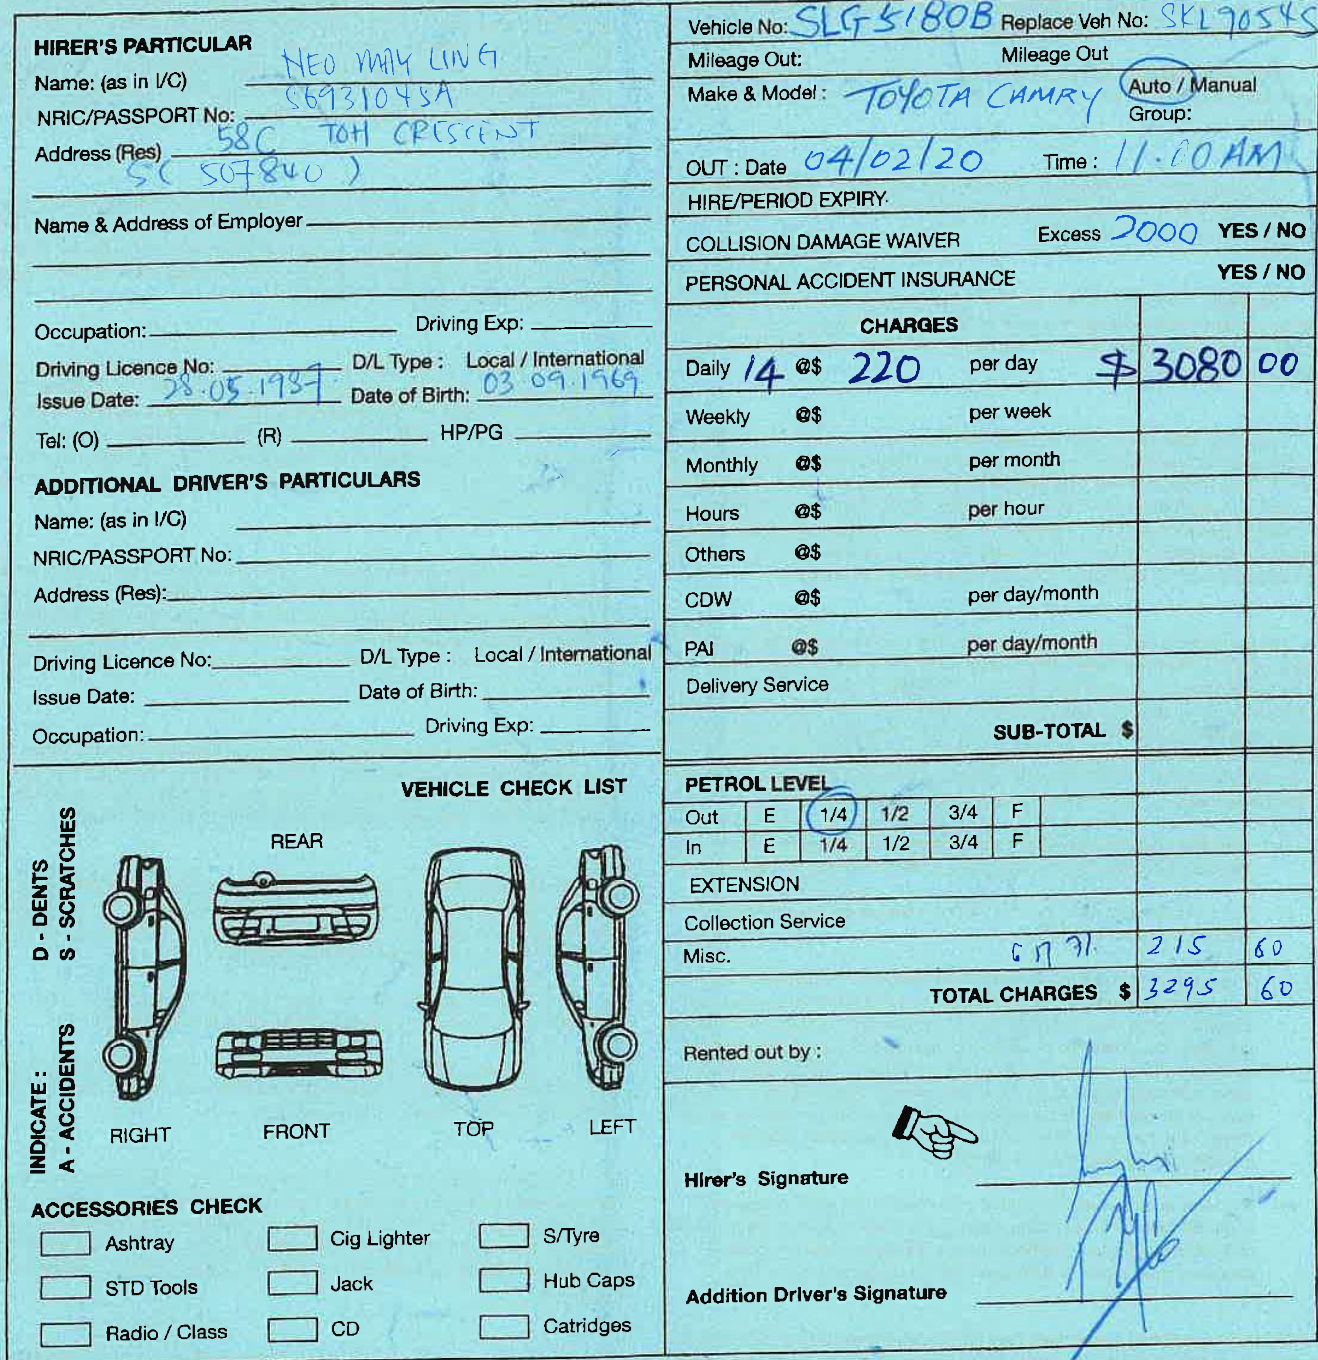 HIRER'S PARTICULAR
Name: (as in I/C) NEO MAY LING
NRIC/PASSPORT No: S6931045A
Address (Res) 58C TOH CRESCENT
S( 507840 )
Name & Address of Employer
Occupation: Driving Exp:
Driving Licence No: D/L Type : Local / International
Issue Date: 28.05.1987 Date of Birth: 03 09.1969
Tel: (O) (R) HP/PG
ADDITIONAL DRIVER'S PARTICULARS
Name: (as in I/C)
NRIC/PASSPORT No:
Address (Res):
Driving Licence No: D/L Type : Local / International
Issue Date: Date of Birth:
Occupation: Driving Exp:
VEHICLE CHECK LIST
INDICATE : D - DENTS
A - ACCIDENTS S - SCRATCHES
REAR
RIGHT FRONT TOP LEFT
ACCESSORIES CHECK
Ashtray Cig Lighter S/Tyre
STD Tools Jack Hub Caps
Radio / Class CD Catridges
Vehicle No: SLG5180B Replace Veh No: SKL9054S
Mileage Out: Mileage Out
Make & Model : TOYOTA CAMRY Auto / Manual
Group:
OUT : Date 04/02/20 Time : 11.00 AM
HIRE/PERIOD EXPIRY.
COLLISION DAMAGE WAIVER Excess 2000 YES / NO
PERSONAL ACCIDENT INSURANCE YES / NO
CHARGES
Daily 14 @$ 220 per day $ 3080 00
Weekly @$ per week
Monthly @$ per month
Hours @$ per hour
Others @$
CDW @$ per day/month
PAI @$ per day/month
Delivery Service
SUB-TOTAL $
PETROL LEVEL
Out E 1/4 1/2 3/4 F
In E 1/4 1/2 3/4 F
EXTENSION
Collection Service
Misc. 215 60
TOTAL CHARGES $ 3295 60
Rented out by :
Hirer's Signature
Addition Driver's Signature